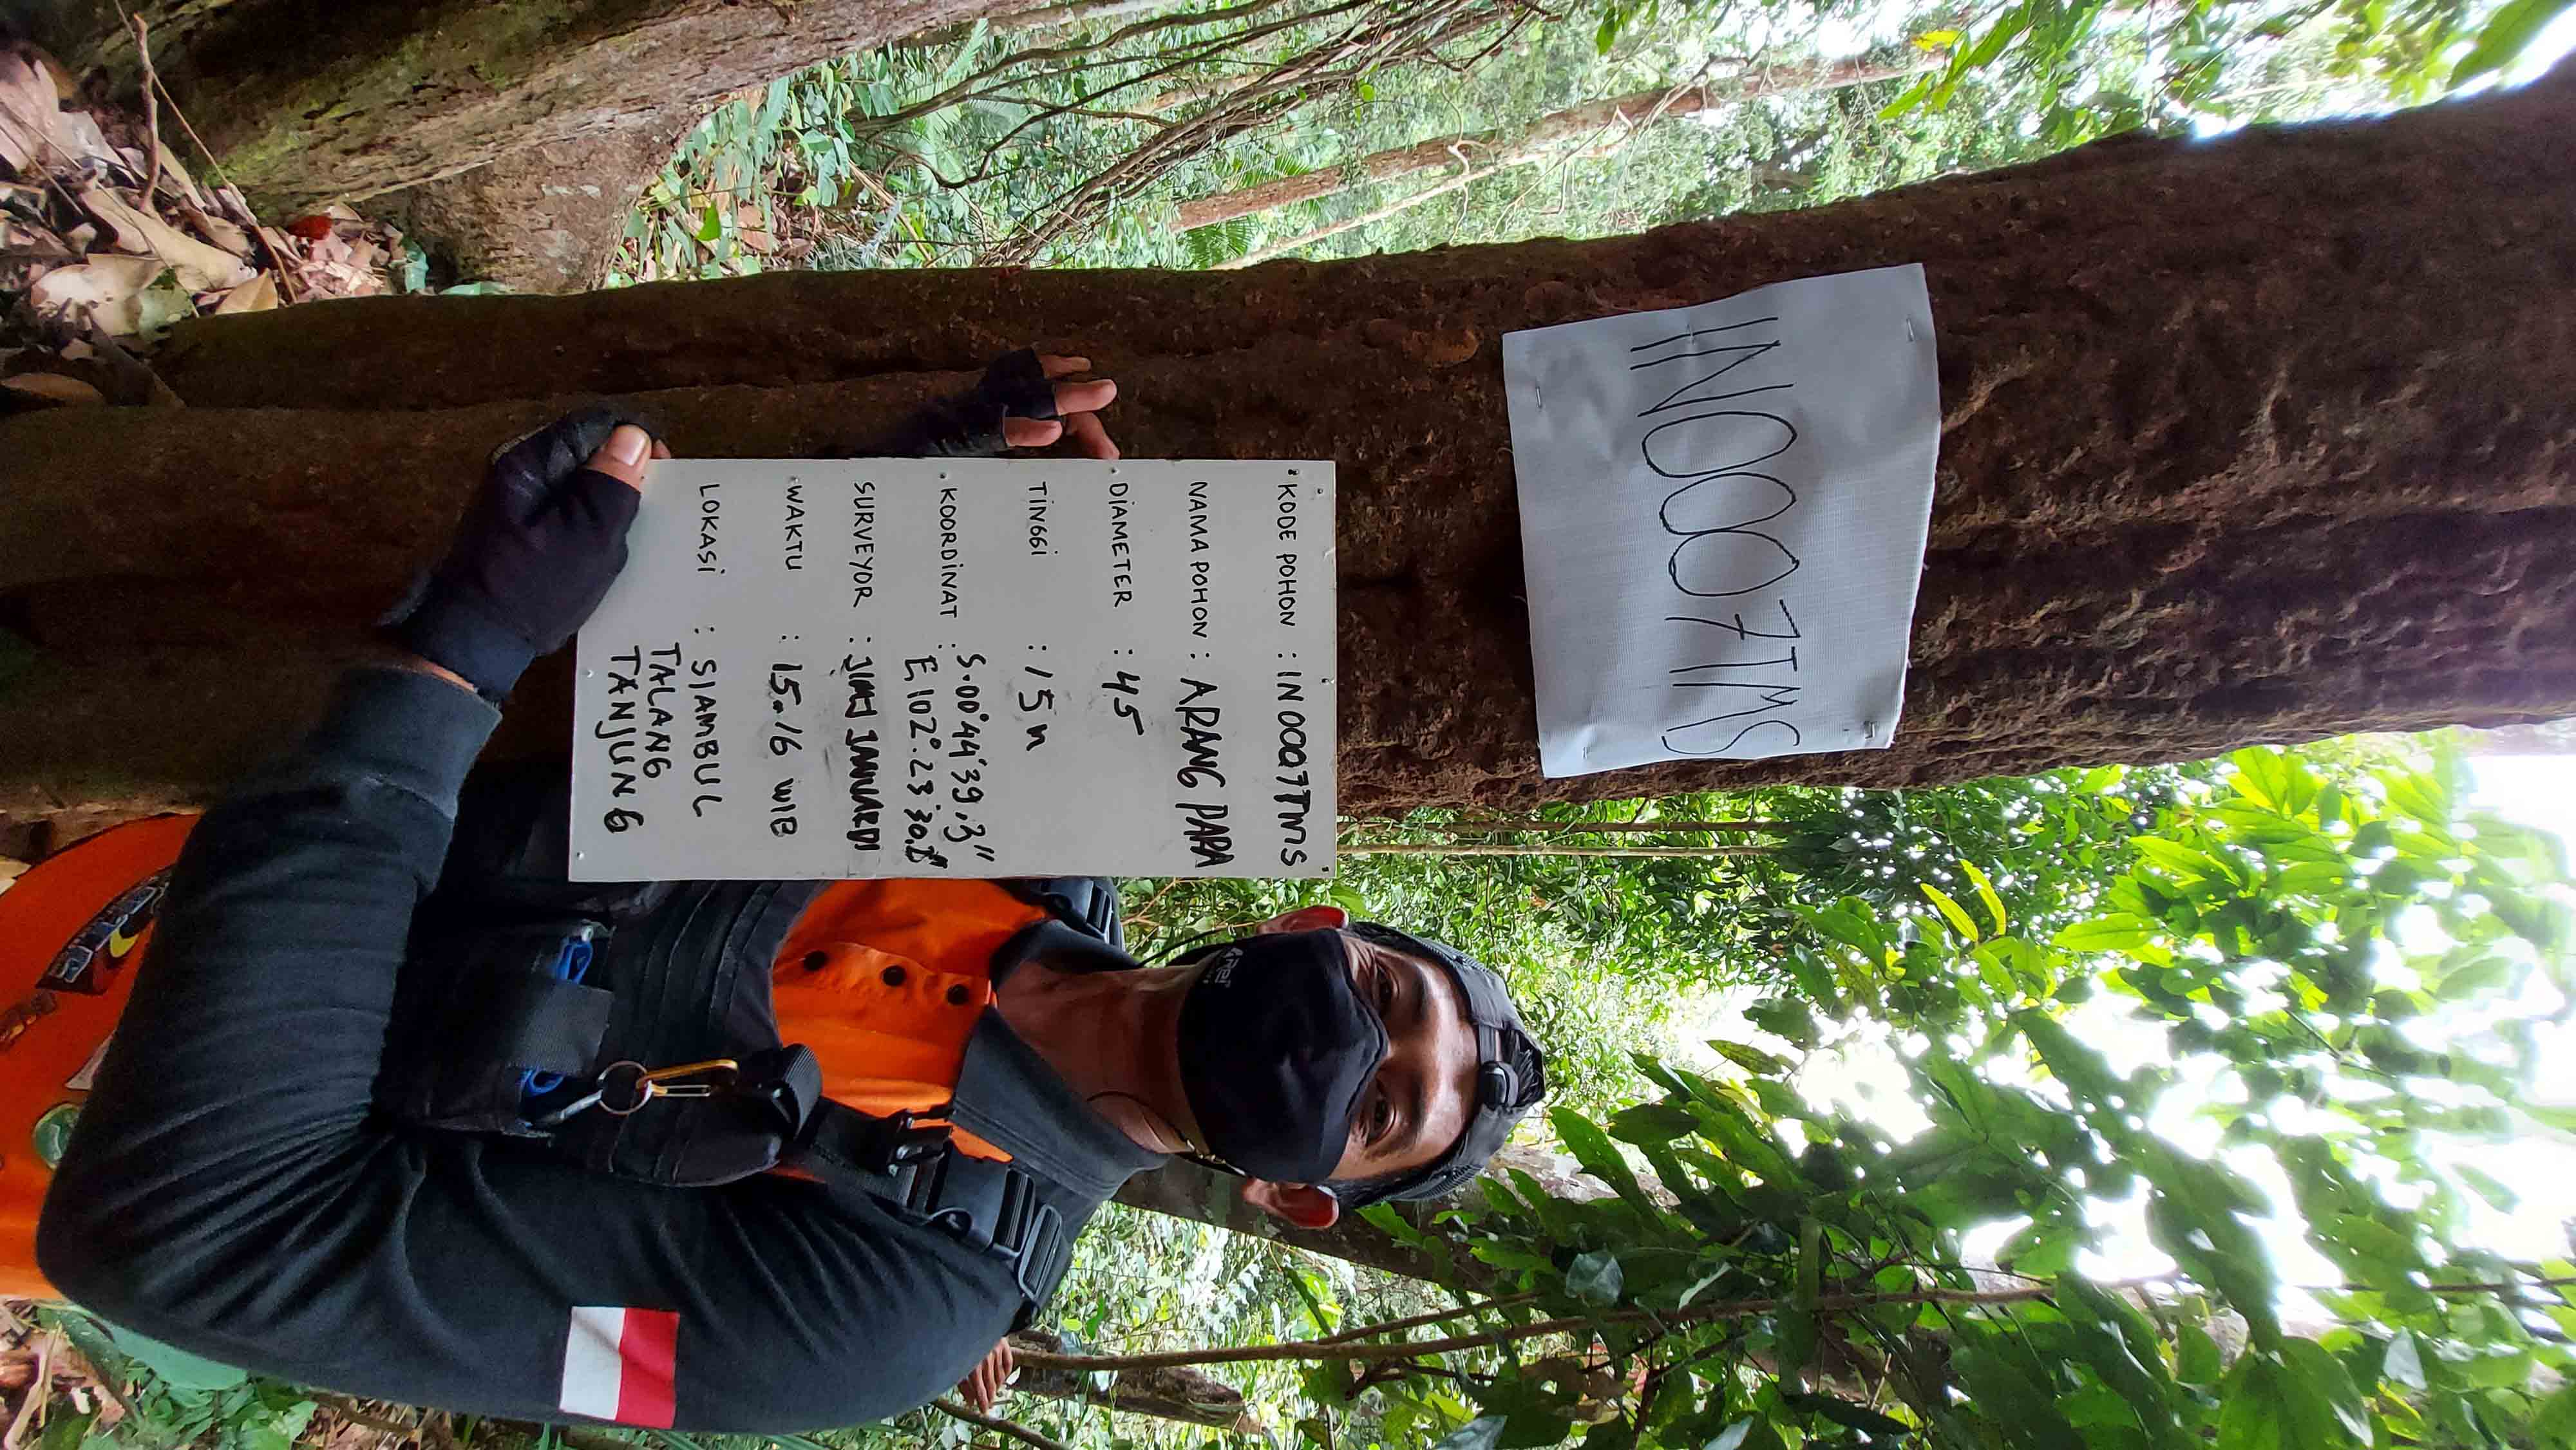 IN0007TMS
KODE POHON : IN0007TMS
NAMA POHON : ARANG PARA
DIAMETER : 45
TINGGI : 15 m
KOORDINAT : S.00°44'39.3"
E 102°.23'30.
SURVEYOR : JIMJ JANUARDI
WAKTU : 15.16 WIB
LOKASI : SIAMBUL
TALANG
TANJUNG
ARei